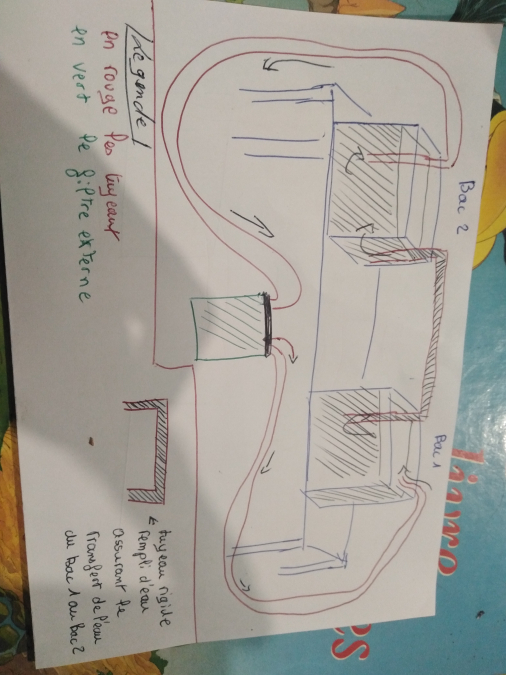 Bac 2
Bac 1
Légende !
en rouge les tuyeaux
en vert le filtre externe
tuyeau rigide
rempli d'eau
assurant le
Transfert de l'eau
du Bac 1 au Bac 2